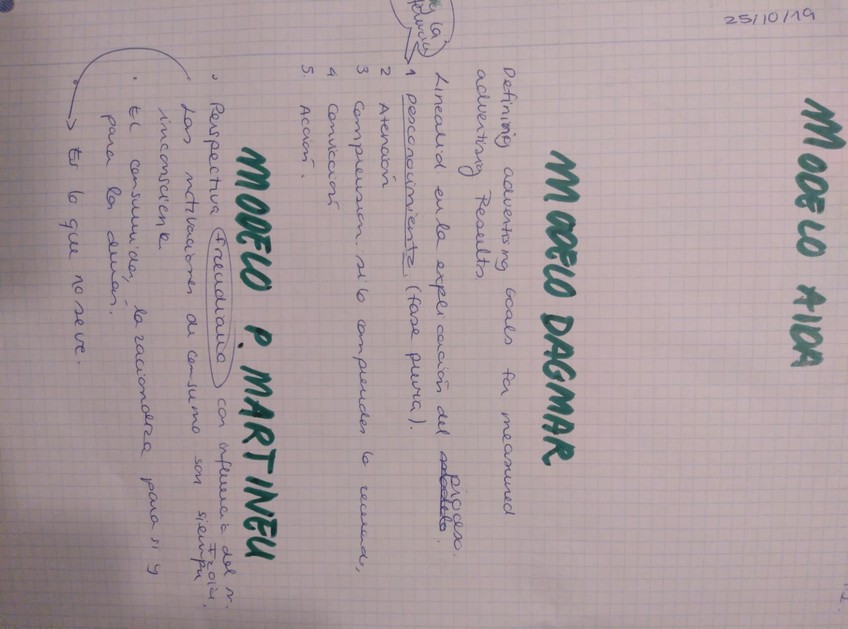 25/10/19
MODELO AIDA
MODELO DAGMAR
Defining advertising Goals for measured
advertising Results
Linealid en la explicación del
1 Desconocimiento. (fase previa).
2 Atención
3 Comprensión. si lo comprendes lo recuerd,
4 Convicción
5. Acción.
MODELO P. MARTINEU
• Perspectiva freudiana con influencia del
Las motivaciones de consumo son siempre
inconsciente.
• El consumidor, la racionaliza para si y
para los demas.
→ Es lo que no se ve.